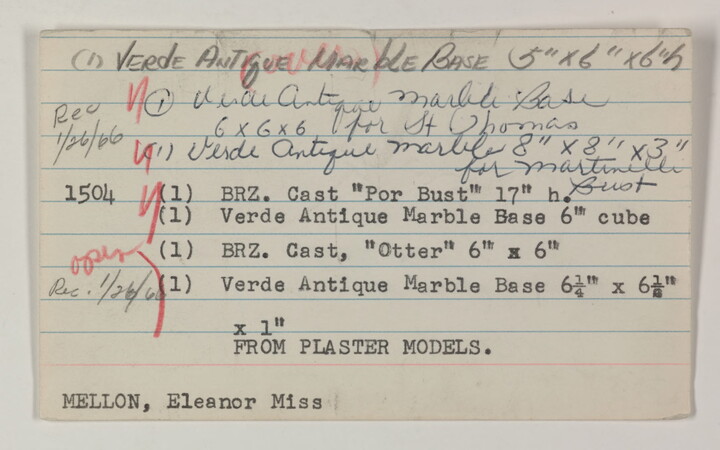 (1) VERDE ANTIQUE MARBLE BASE 5" x 6" x 6"h
(1) Verde Antique Marble Base
Rec 1/26/66
6 x 6 x 6 for St Thomas
(1) Verde Antique Marble 8" x 8" x 3"
for Martinelli
Bust
1504 (1) BRZ. Cast "Por Bust" 17" h.
(1) Verde Antique Marble Base 6" cube
open
(1) BRZ. Cast, "Otter" 6" x 6"
Rec. 1/26/66 (1) Verde Antique Marble Base 6¼" x 6½"
x 1"
FROM PLASTER MODELS.
MELLON, Eleanor Miss